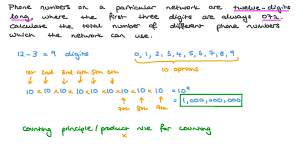 Phone numbers on a particular network are twelve-digits
long, where the first three digits are always 072.
Calculate the total number of different phone numbers
which the network can use.
12-3 = 9 digits 0, 1, 2, 3, 4, 5, 6, 7, 8, 9
10 options
1st 2nd 3rd 4th 5th 6th
10 x 10 x 10 x 10 x 10 x 10 x 10 x 10 x 10 = 10⁹
7th 8th 9th = 1,000,000,000
counting principle/product rule for counting
x